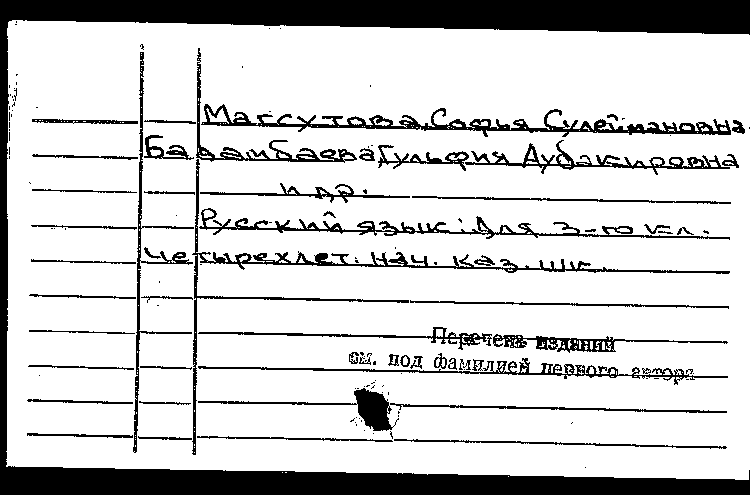 Максутова, Софья Сулеймановна.
Бадамбаева, Гульфия Аубакировна
и др.
Русский язык: Для 3-го кл.
четырехлет. нач. каз. шк.
Перечень изданий
см. под фамилией первого автора